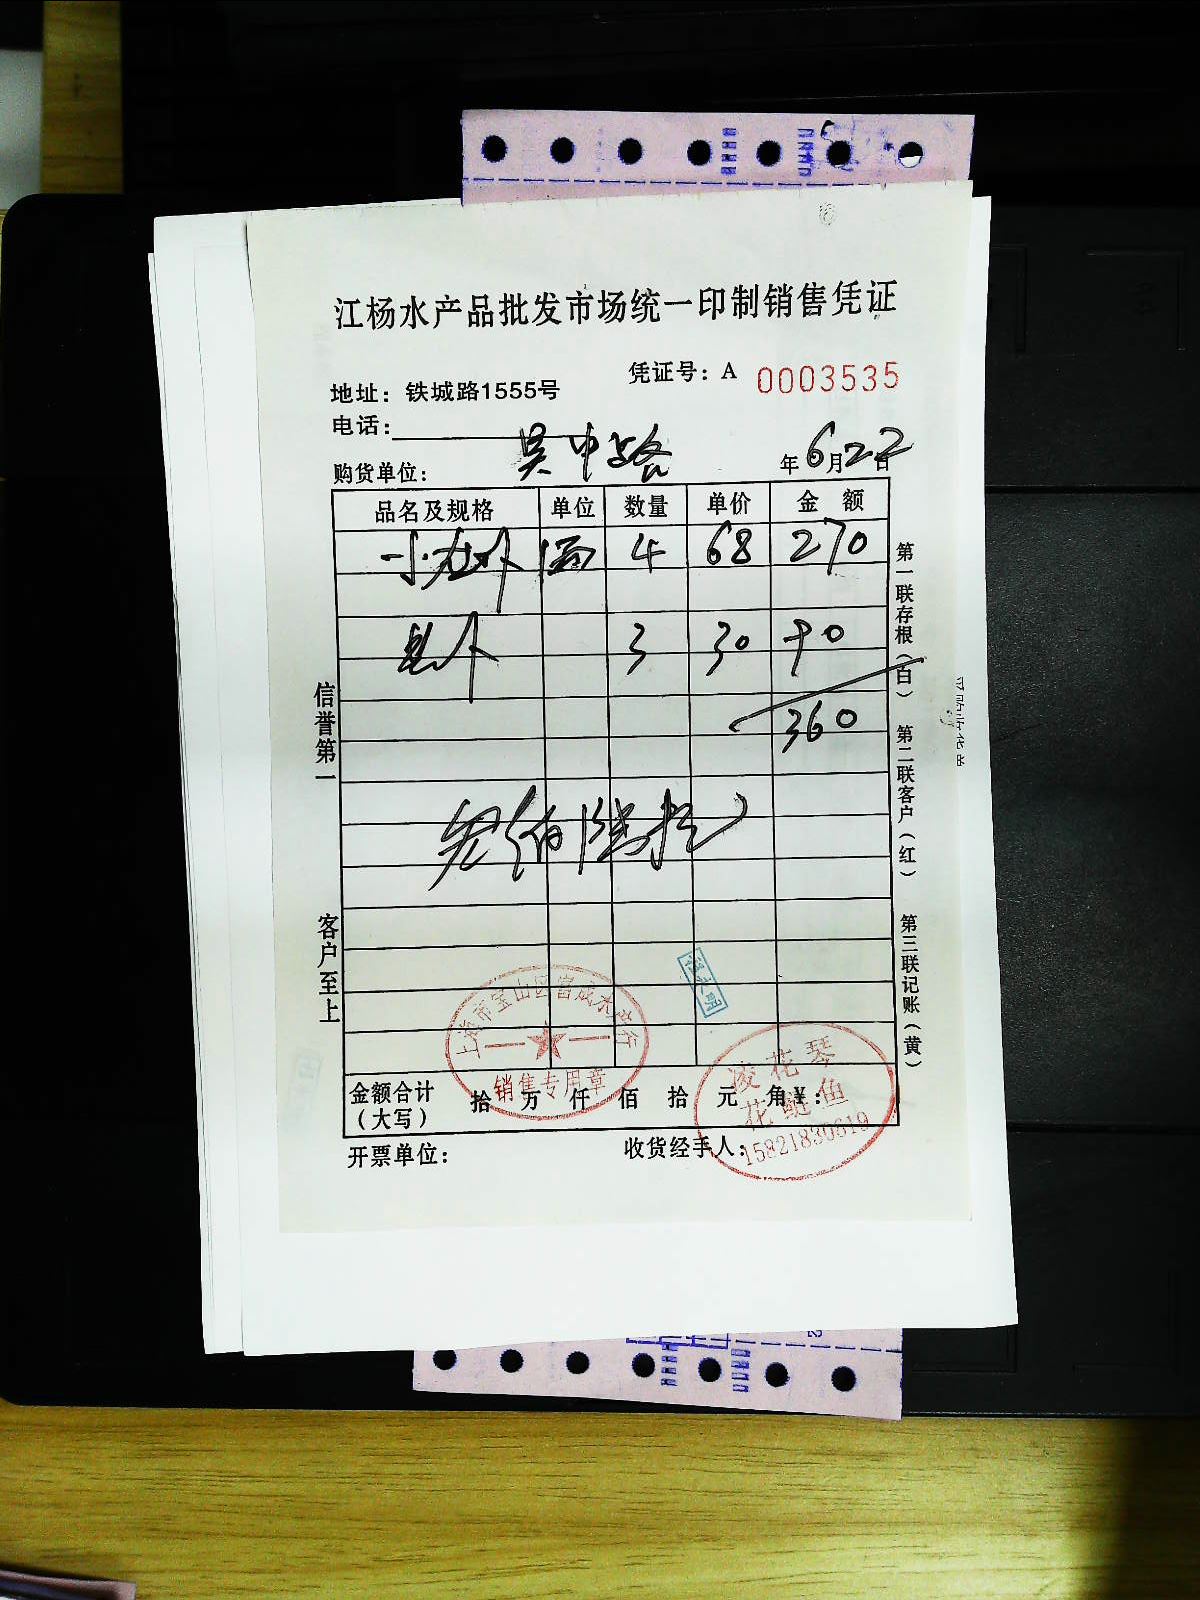 江杨水产品批发市场统一印制销售凭证
凭证号：A 0003535
地址：铁城路1555号
电话：
购货单位： 吴中路 年6月22日
品名及规格 单位 数量 单价 金 额
4 68 270
3 30 90
360
信誉第一
客户至上
第一联存根（白）
第二联客户（红）
第三联记账（黄）
上海市宝山区富成水产行
销售专用章
凌花琴
花鲢鱼
15821830619
金额合计（大写） 拾 万 仟 佰 拾 元 角 ¥：
开票单位： 收货经手人：